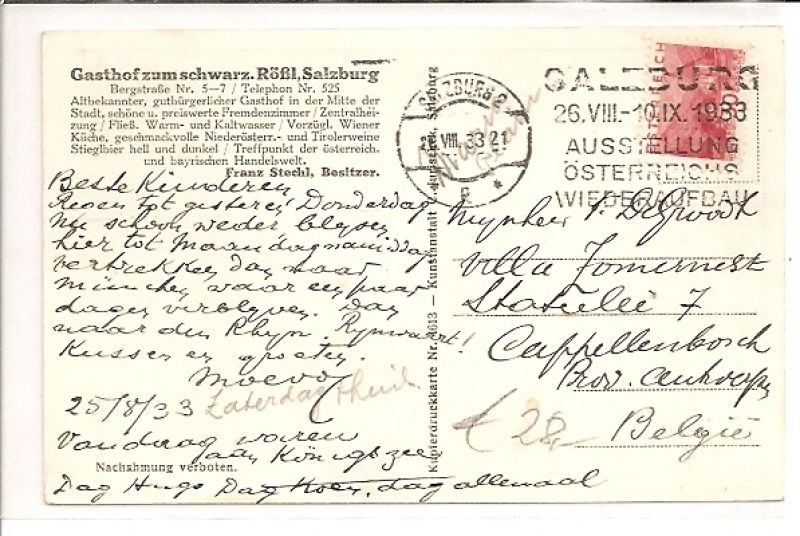 Gasthof zum schwarz. Rößl, Salzburg
Bergstraße Nr. 5—7 / Telephon Nr. 525
Altbekannter, gutbürgerlicher Gasthof in der Mitte der
Stadt, schöne u. preiswerte Fremdenzimmer / Zentralhei-
zung / Fließ. Warm- und Kaltwasser / Vorzügl. Wiener
Küche, geschmackvolle Niederösterr.- und Tirolerweine
Stieglbier hell und dunkel / Treffpunkt der österreich.
und bayrischen Handelswelt.
Franz Stechl, Besitzer.
Beste Kinderen
Regen tot gisteren Donderdag
nu schoon weder blyven
hier tot Maandagnamiddag
vertrekken dan naar
München waar een paar
dagen verblyven. Dan
naar den Rhyn. Rynvaart!
Kussen en groeten.
Moevo
25/8/33 Zaterdag
Vandaag waren
aan Königszee
Nachahmung verboten.
Dag Hugo Dag Koen, dag allemaal
Kupferdruckkarte Nr. 4613 — Kunstanstalt Salzburg
SALZBURG 2
VIII. 33 21
SALZBURG
26.VIII.-10.IX.1933
AUSSTELLUNG
ÖSTERREICHS
WIEDERAUFBAU
Mynheer
Villa
Statielei 7
Cappellenbosch
Prov. Antwerpen
België
€ 28,-